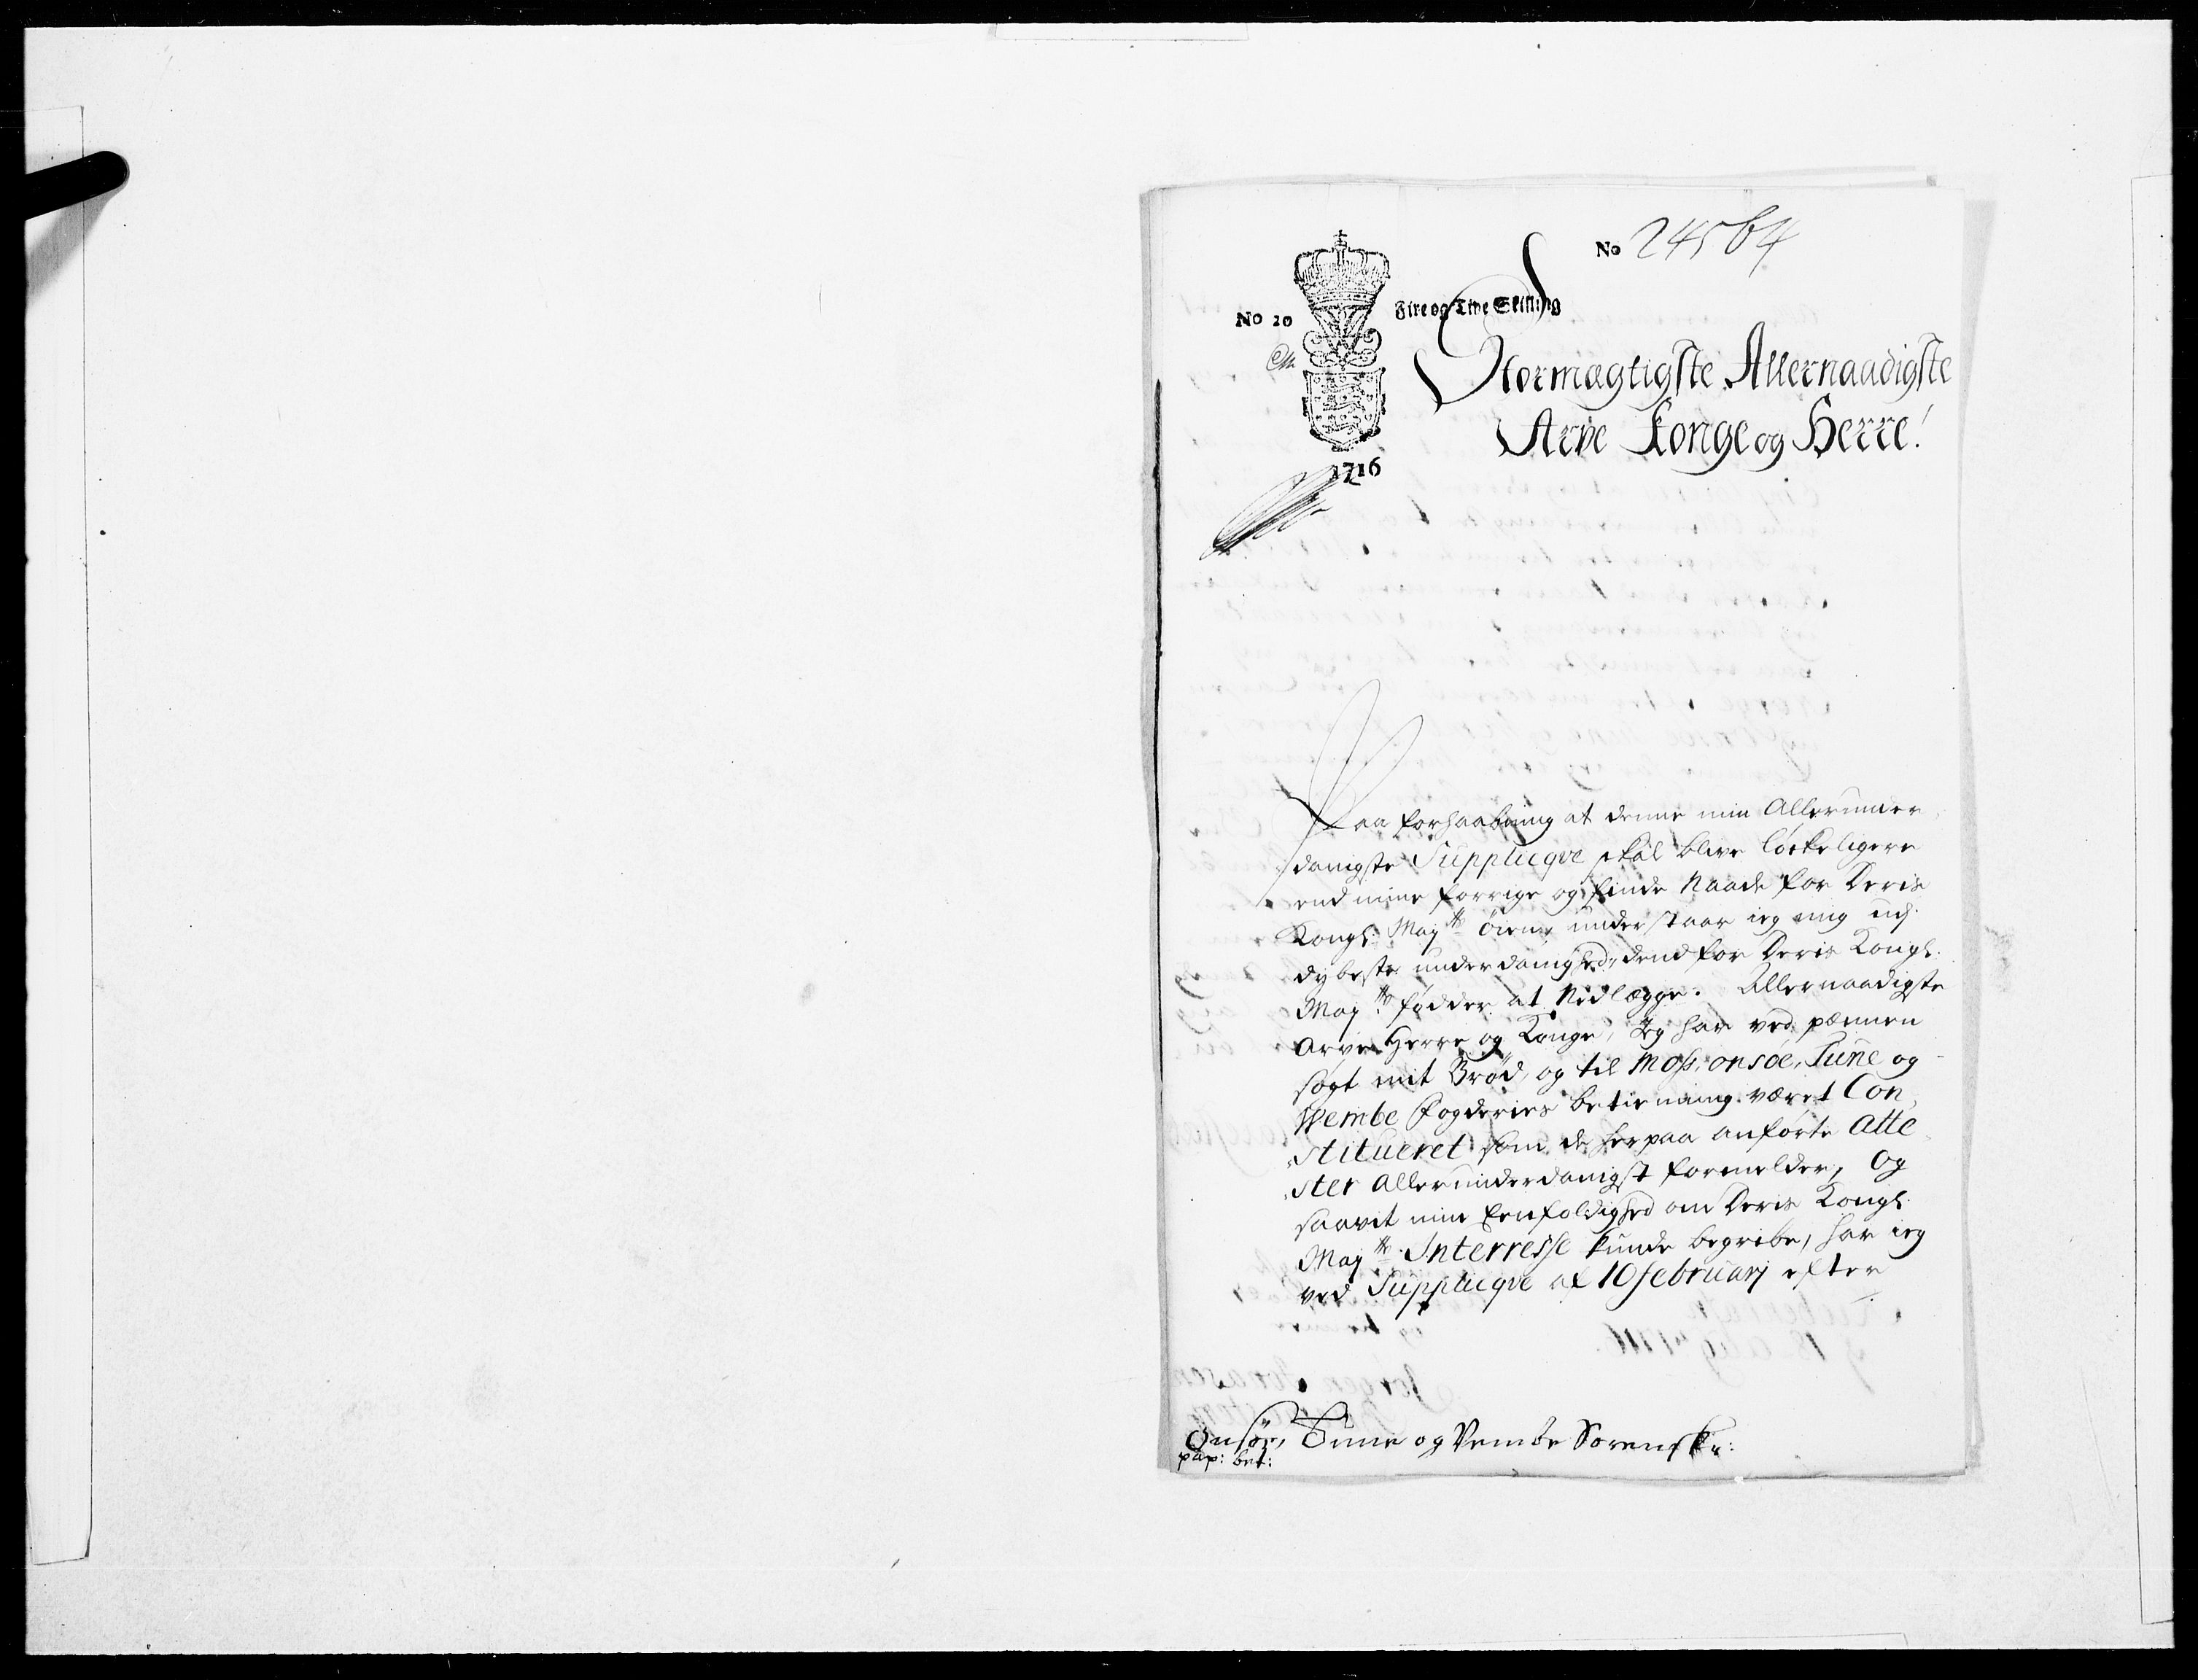 No 24564
No 20 Fire og Tive Skilling
1716
Stormægtigste Allernaadigste
Arve Konge og Herre!
Paa forhaabning at denne min Allerunder,
danigste Supplicqve skal blive lökkeligere
end mine forrige og finde Naade for Deris
Kongl: May.tts Öiene understaar ieg mig udj
dybeste underdanighed, dend for Deris Kongl.
May.tts födder at Nedlægge. Allernaadigste
Arve Herre og Konge, Jeg har ved pennen
sögt mit Bröd, og til Moss, onsöe, Tune og
Wembe Fogderies betienning været Con,
stitueret som de herpaa anförte Atte
ster allerunderdanigst formelder, Og
saavit min Eenfoldighed om Deris Kongl.
May.tts Interresse kunde begribe, har ieg
ved Supplicqve af 10 februarij efter
Onsöe, Tune og Vembe Sorenskr:
pap: bet: